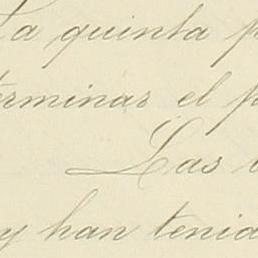 la quinta
terminar el
Las
y han tenid